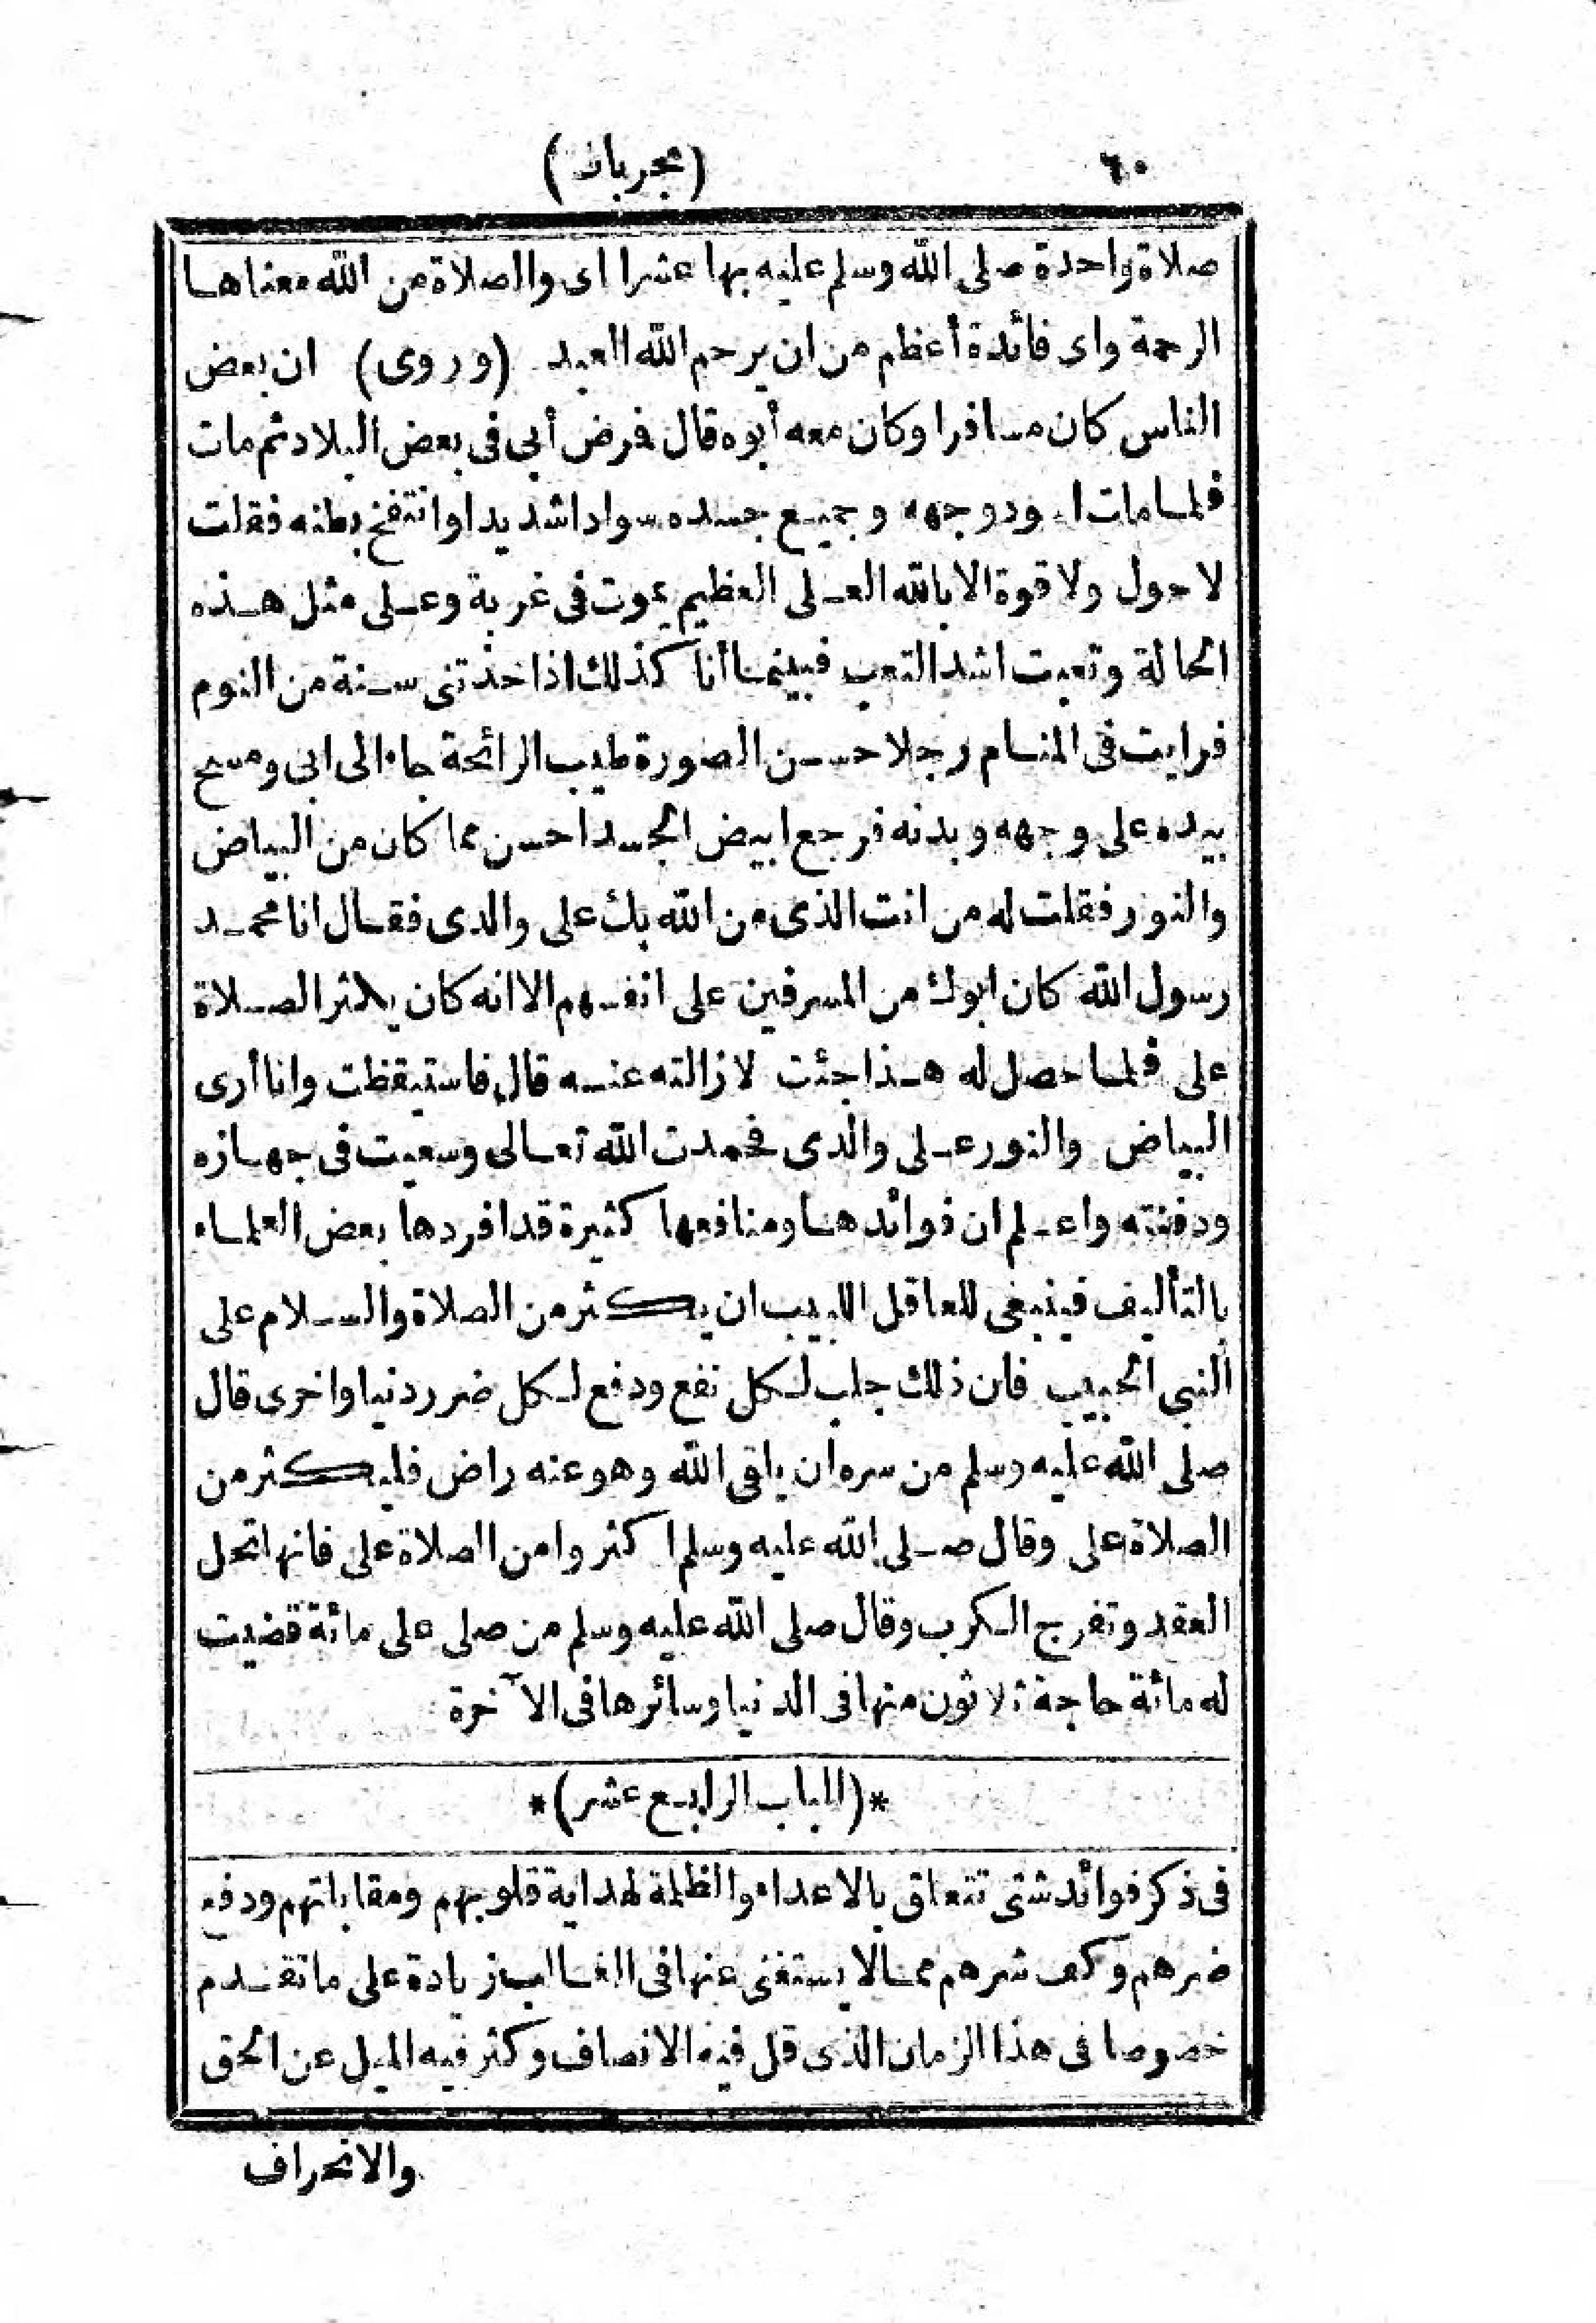 ٦٠
(مجربات)
صلاة واحدة صلى الله وسلم عليه بها عشرا اى والصلاة من الله معناها
الرحمة واى فائدة أعظم من ان يرحم الله العبد (وروى) ان بعض
الناس كان مسافرا وكان معه أبوه قال فمرض أبى فى بعض البلاد ثم مات
فلما مات اسود وجهه وجميع جسده سوادا شديدا وانتفخ بطنه فقلت
لا حول ولا قوة الا بالله العلى العظيم يموت فى غربة وعلى مثل هذه
الحالة وتعبت اشد التعب فبينما أنا كذلك اذ اخذتنى سنة من النوم
فرايت فى المنام رجلا حسن الصورة طيب الرائحة جاء الى ابى ومسح
بيده على وجهه وبدنه فرجع ابيض الجسد احسن مما كان من البياض
والنور فقلت له من انت الذى من الله بك على والدى فقال انا محمد
رسول الله كان ابوك من المسرفين على انفسهم الا انه كان يكثر الصلاة
على فلما حصل له هذا جئت لازالته عنه قال فاستيقظت وانا أرى
البياض والنور على والدى فحمدت الله تعالى وسعيت فى جهازه
ودفنته واعلم ان فوائدها ومنافعها كثيرة قد افردها بعض العلماء
بالتأليف فينبغى للعاقل اللبيب ان يكثر من الصلاة والسلام على
النبى الحبيب فان ذلك جلب لكل نفع ودفع لكل ضرر دنيا واخرى قال
صلى الله عليه وسلم من سره ان يلقى الله وهو عنه راض فليكثر من
الصلاة على وقال صلى الله عليه وسلم اكثروا من الصلاة على فانها تحل
العقد وتفرج الكرب وقال صلى الله عليه وسلم من صلى على مائة قضيت
له مائة حاجة ثلاثون منها فى الدنيا وسائرها فى الآخرة
*(الباب الرابع عشر)*
فى ذكر فوائد شتى تتعلق بالاعداء والظلمة لهداية قلوبهم ومقابلتهم ودفع
ضرهم وكف شرهم مما لا يستغنى عنها فى الغالب زيادة على ما تقدم
خصوصا فى هذا الزمان الذى قل فيه الانصاف وكثر فيه الميل عن الحق
والانحراف